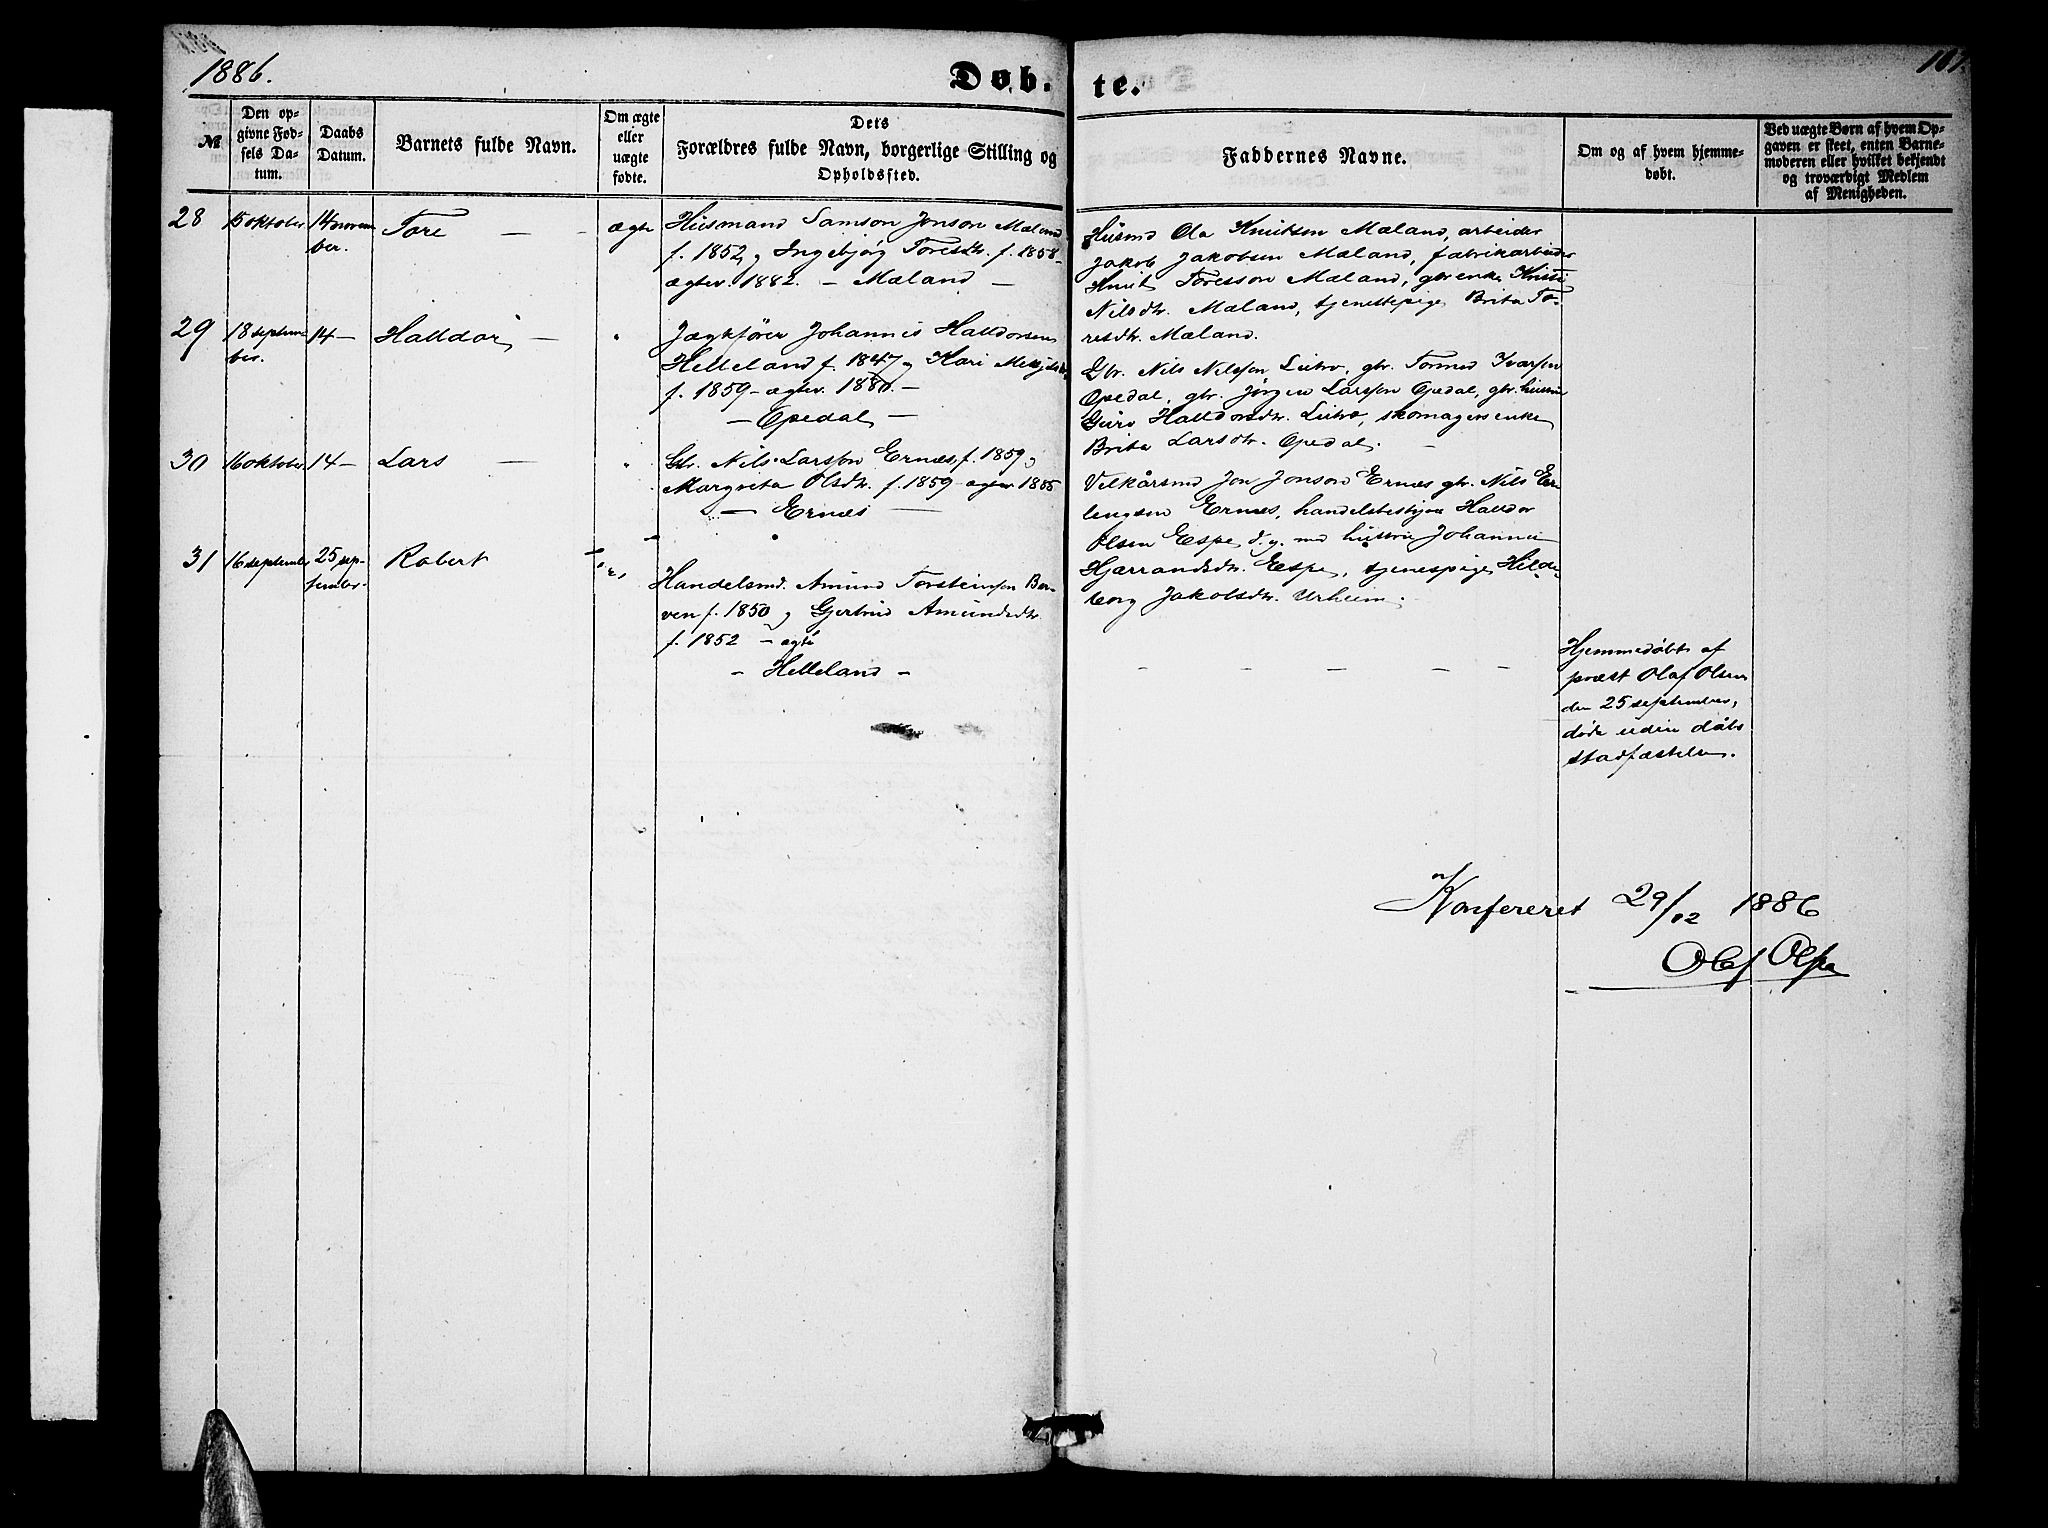 1886.
Døb-
te.
№
Den op-
givne Fød-
sels Da-
tum.
Daabs
Datum.
Barnets fulde Navn.
Om ægte
eller
uægte
fødte.
Dets
Forældres fulde Navn, borgerlige Stilling og
Opholdssted.
Faddernes Navne.
Om og af hvem hjemme-
døbt.
Ved uægte Børn af hvem Op-
gaven er skeet, enten Barne-
moderen eller hvilket bekjendt
og troværdigt Medlem
af Menigheden.
28
15 oktober
14 novem
ber.
Tore — -
ægte
Husmand Samson Jonson Mæland
f. 1852 og Ingebjørg Toresdtr. f. 1858 -
ægtev. 1882. - Mæland -
Husmd Ola Knutson Mæland, arbeider
Jakob Jakobsen Mæland, fabrikarbeider
Knut Toresson Mæland, gbr enke Kristi
Nilsdtr. Mæland, tjenestepige Brita To-
resdtr. Mæland.
29
18 septem
ber.
14 -
Halldor -
"
Jægtfører Johannis Halldorsen
Helleland f. 1847 og Kari
f. 1859 - ægtev. 1880. -
- Opedal -
Gbr. Nils Nilsson Lutro, gbr. Tormod Ivarson
Opedal, gbr. Jørgen Larsson Opedal, gbr. hustru
Guro Halldorsdtr. Lutro, skomagerenke
Brita Larsdtr. Opedal. -
30
16 oktober
14 -
Lars -
"
Gbr. Nils Larsson Ernæs, f. 1859 og
Margreta Olsdtr. f. 1859 - ægtev. 1885
- Ernæs -
Velkårsmd Jon Jonson Ernæs gbr. Nils Er-
lingsen Ernæs, handelsbestyrer Halldor
Olsen Espe, d. g. md hustru Johanne
Hjærrandsdtr. Espe, tjenespige Hilde-
borg Jakobsdtr. Urheim.
31
16 september
25 sep-
tember.
Robert
Handelsmd. Amund Torsteinsen Bor-
ven f. 1850 og Gjertrud Amundsdtr
f. 1852 - ægte
- Helleland -
- - - - -
Hjemmedøbt af
præst Olaf Olsen
den 25 september,
døde uden dåbs
stadfæstelse.
Konfereret 29/12 1886
Olaf Olsen